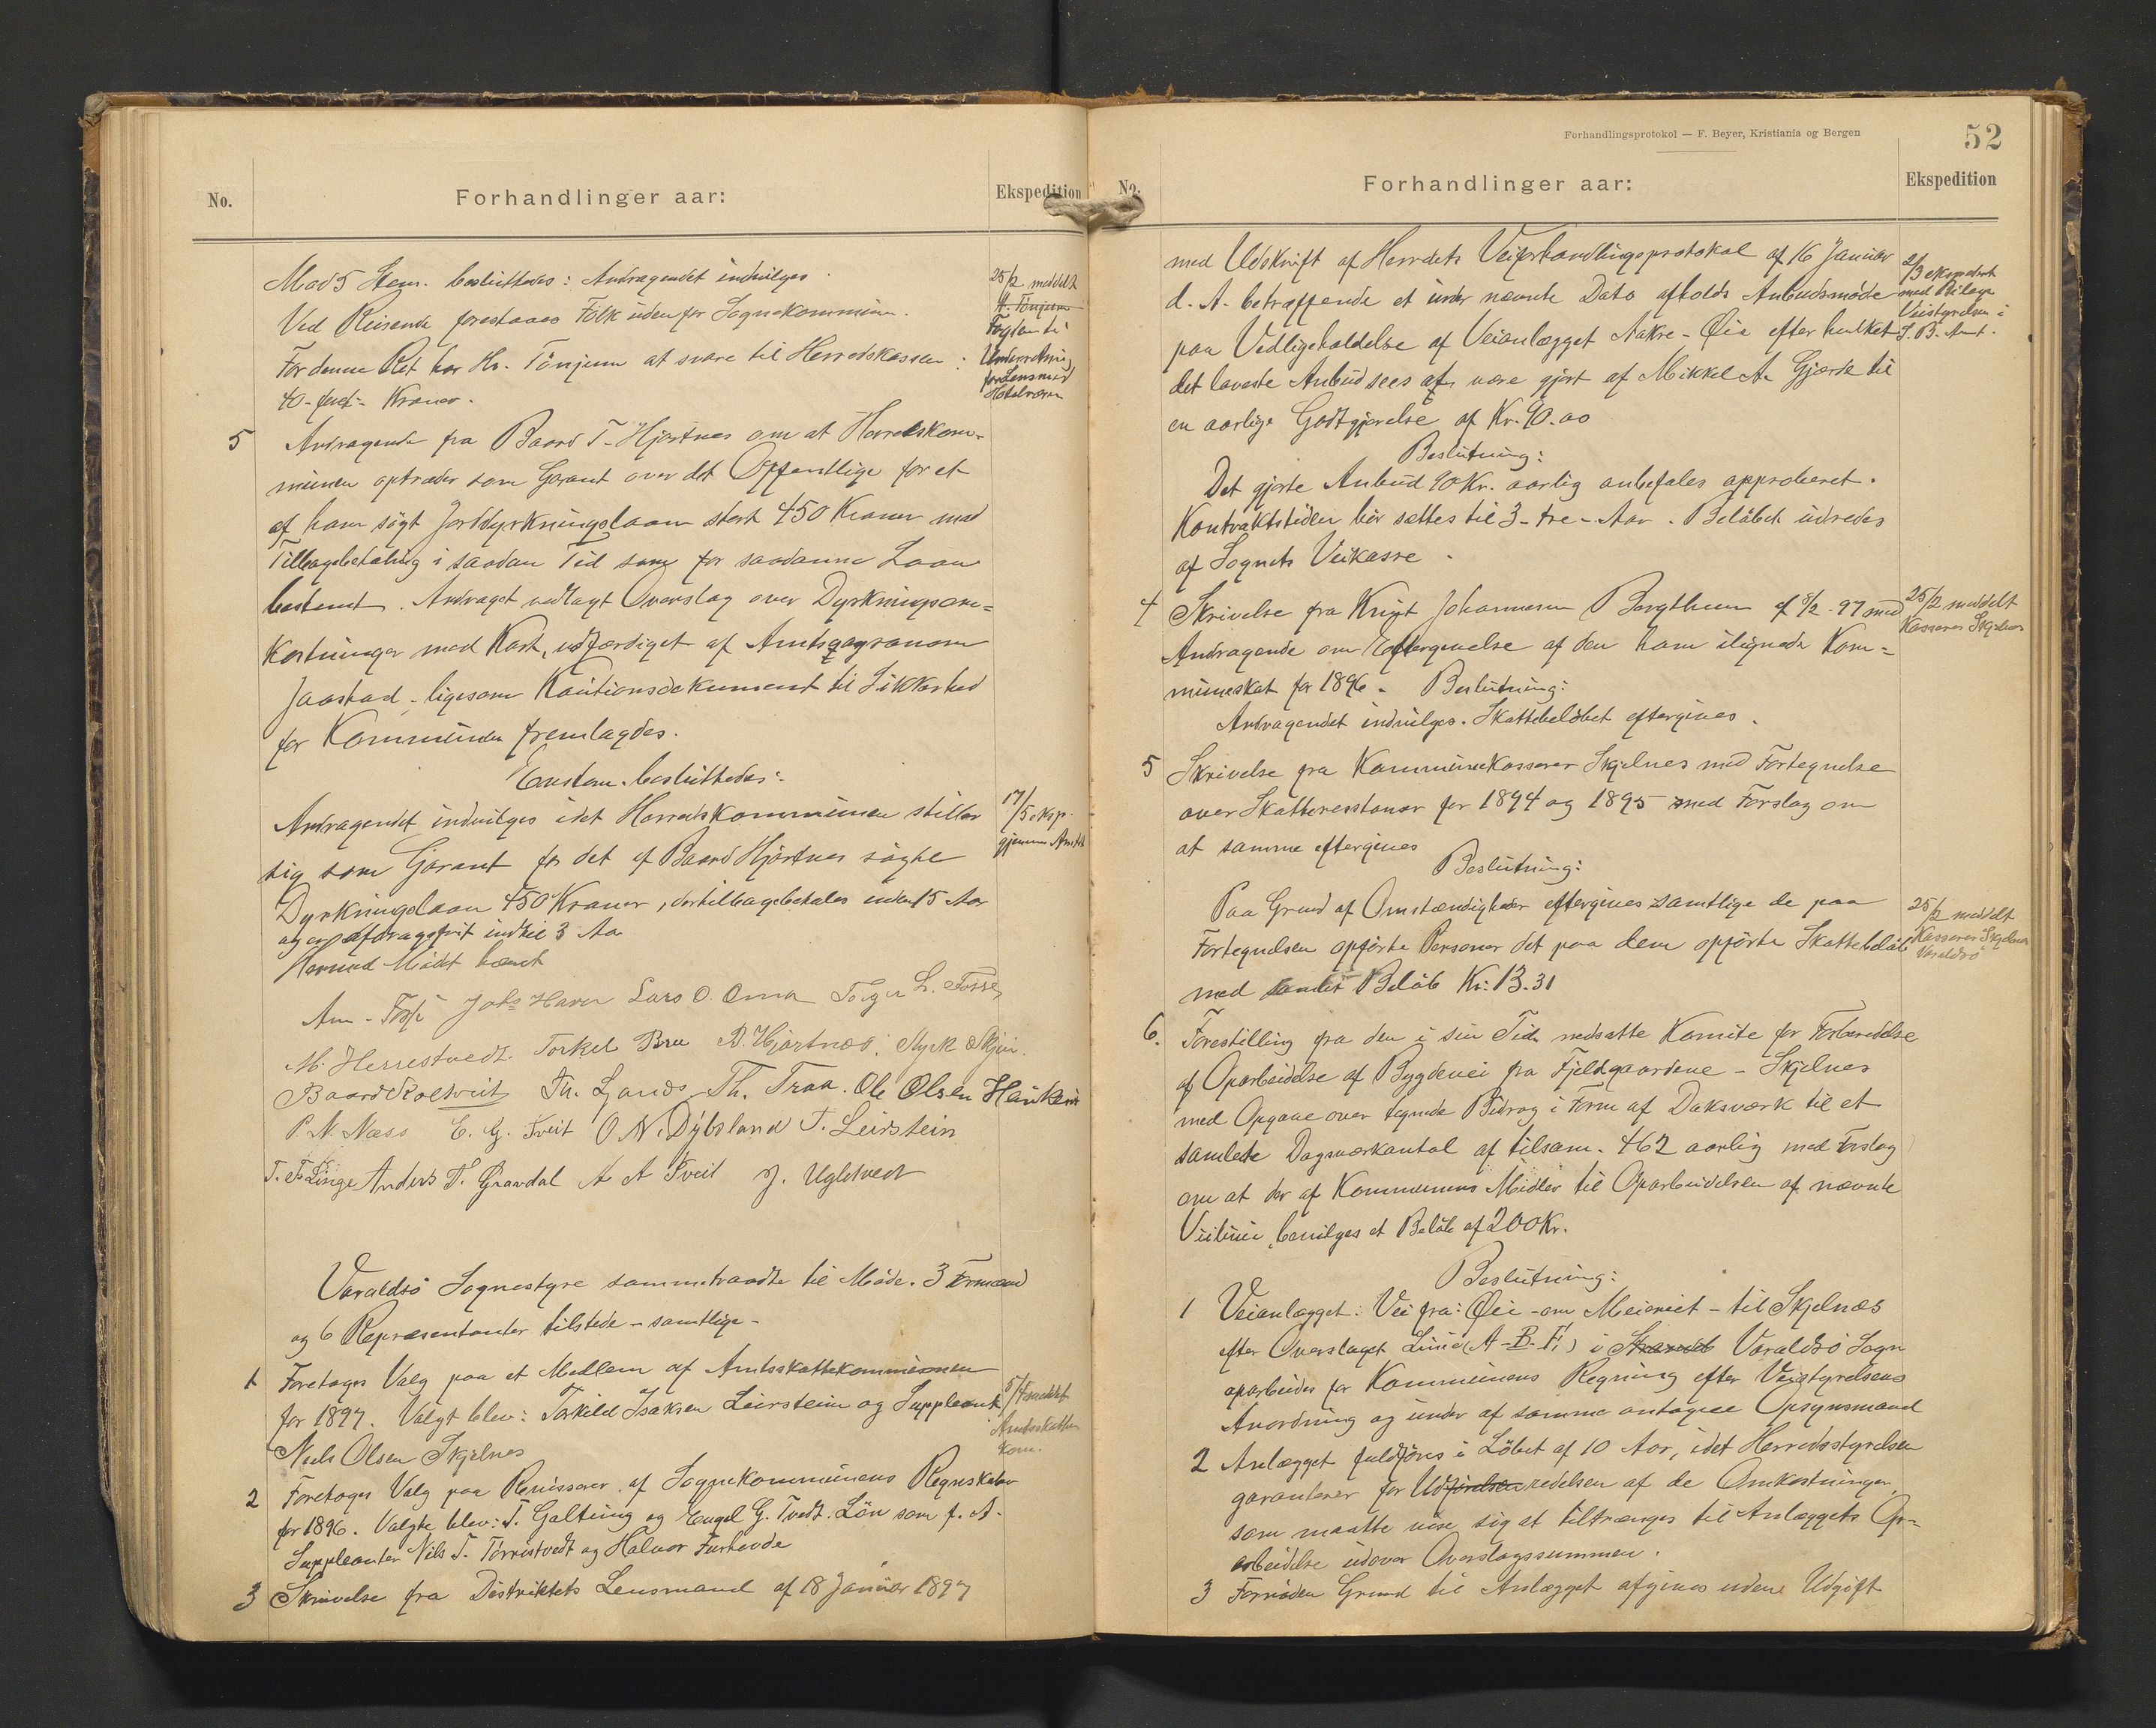 No.
Forhandlinger aar:
Ekspedition
Med 5 Stem. besluttedes: Andragendet indvilges.
Ved Reisende forstaaes Folk udenfor Sognekommunen.
For denne Ret har Hr. Tönjum at svare til Herredskassen:
40 - forti - Kroner.
25/2 meddelt
H. Tönjum
Fogden til
Underretning
for Lensmand
5 Andragende fra Baard T. Hjortnes om at Herredskom-
munen optræder som Garant over det Offentlige for et
af ham sögt Jorddyrkningslaan stort 450 Kroner med
Tilbagebetaling i saadan Tid som for saadanne Laan
bestemt. Andraget vedlagt Overslag over Dyrkningsom-
kostninger med Kart, udfærdiget af Amtsagronom
Jaastad - ligesom Kautionsdokument til Sikkerhed
for Kommunen fremlagdes.
Enstem. besluttedes:
Andragendet indvilges idet Herredskommunen stiller
sig som Garant for det af Baard Hjortnes søgte
Dyrkningslaan 450 Kroner, der tilbagebetales inden 15 Aar
og er afdragsfrit indtil 3 Aar
17/5 eksp.
gjennem Amtet
Hermed Mödt hævet
Am. Fosse Johs Haver Lars O. Oma Torger L. Fosse
M. Herrestvedt. Torkel Bru B. Hjortnæs. Styrk Skjeie.
Baard Rolstveit Th. Sjands Th. Traa. Ole Olsen
P. N. Næss E. G. Tveit O N. Dybsland T. Leirstein
T. T. Linge Anders T. Gravdal A A Tveit J. Ugletvedt
Varaldsö Sognestyre sammetraadte til Möde. 3 Formænd
og 6 Repræsentanter tilstede - samtlige -
1 Foretoges Valg paa et Medlem af Amtsskattekommisionen
for 1897. Valgt blev: Torkild Isaksen Leirstein og Suppleant
Niels Olsen Skjelnes
5/4 meddelt
Amtsskatte
kom.
2 Foretoges Valg paa Revisorer af Sognekommunens Regnskaber
for 1896. Valgte blev: T. Galtung og Engel G. Tvedt. Lön som f. A.
Suppleanter Nils T. Törrestvedt og Halvor Furhovde
3 Skrivelse fra Distriktets Lensmand af 18 Januar 1897
Forhandlingsprotokol — F. Beyer, Kristiania og Bergen
52
No.
Forhandlinger aar:
Ekspedition
med Udskrift af Herredets Veiforhandlingsprotokol af 16 Januar
d. A. betræffende et under nævnte Dato afholdt Anbudsmöde
paa Vedligeholdelse af Veianlægget Nakre - Øie efter hvilket
det laveste Anbud sees at være gjort af Mikkel A. Gjærde til
en aarlige Godtgjørelse af Kr. 90.00
2/3 ekspedert
med Bilage
Veistyrelsen i
S. B. Amt.
Beslutning:
Det gjorte Anbud 90 Kr. aarlig anbefales approberet.
Kontraktstiden bör sættes til 3 - tre - Aar. Belöbet udredes
af Sognets Veikasse.
4 Skrivelse fra Knut Johannesen Bergthun af 8/2 - 97 med
Andragende om Eftergivelse af den ham ilignede Kom-
muneskat for 1896. Beslutning:
Andragendet indvilges. Skattebelöbet eftergives.
25/2 meddelt
Kasserer Skjelnes
5 Skrivelse fra Kommunekasserer Skjelnes med Fortegnelse
over Skatterestancer for 1894 og 1895 med Forslag om
at samme eftergives
Beslutning:
Paa Grund af Omstændigheder eftergives samtlige de paa
Fortegnelsen opförte Personer det paa dem opförte Skattebelöb
med samlet Belöb Kr. 13.31
25/2 meddelt
Kasserer Skjelnes
Varaldsö
6. Forestilling fra den i sin Tid nedsatte Komite for Forberedelse
af Oparbeidelse af Bygdevei fra Fjeldgaardene - Skjelnes
med Opgave over tegnede Bidrag i Form af Daksværk til et
samlede Dagsværkantal af tilsam. 462 aarlig med Forslag
om at der af Kommunens Midler til Oparbeidelsen af nævnte
Veilinie bevilges et Belöb af 200 Kr.
Beslutning:
1 Veianlægget: Vei fra: Øie - om Meieriet - til Skjelnæs
efter Overslaget Linie (A - B - F.) i Strandeb Varaldsö Sogn
oparbeides for Kommunens Regning efter Veistyrelsens
Anordning og under af samme antagne Opsynsmand
2 Anlægget fuldföres i Löbet af 10 Aar, idet Herredsstyrelsen
garanterer for Udförelsen redelsen af de Omkostninger
som maatte vise sig at tiltrænges til Anlæggets Op-
arbeidelse udover Overslagssummen.
3 Fornöden Grund til Anlægget afgives uden Udgift